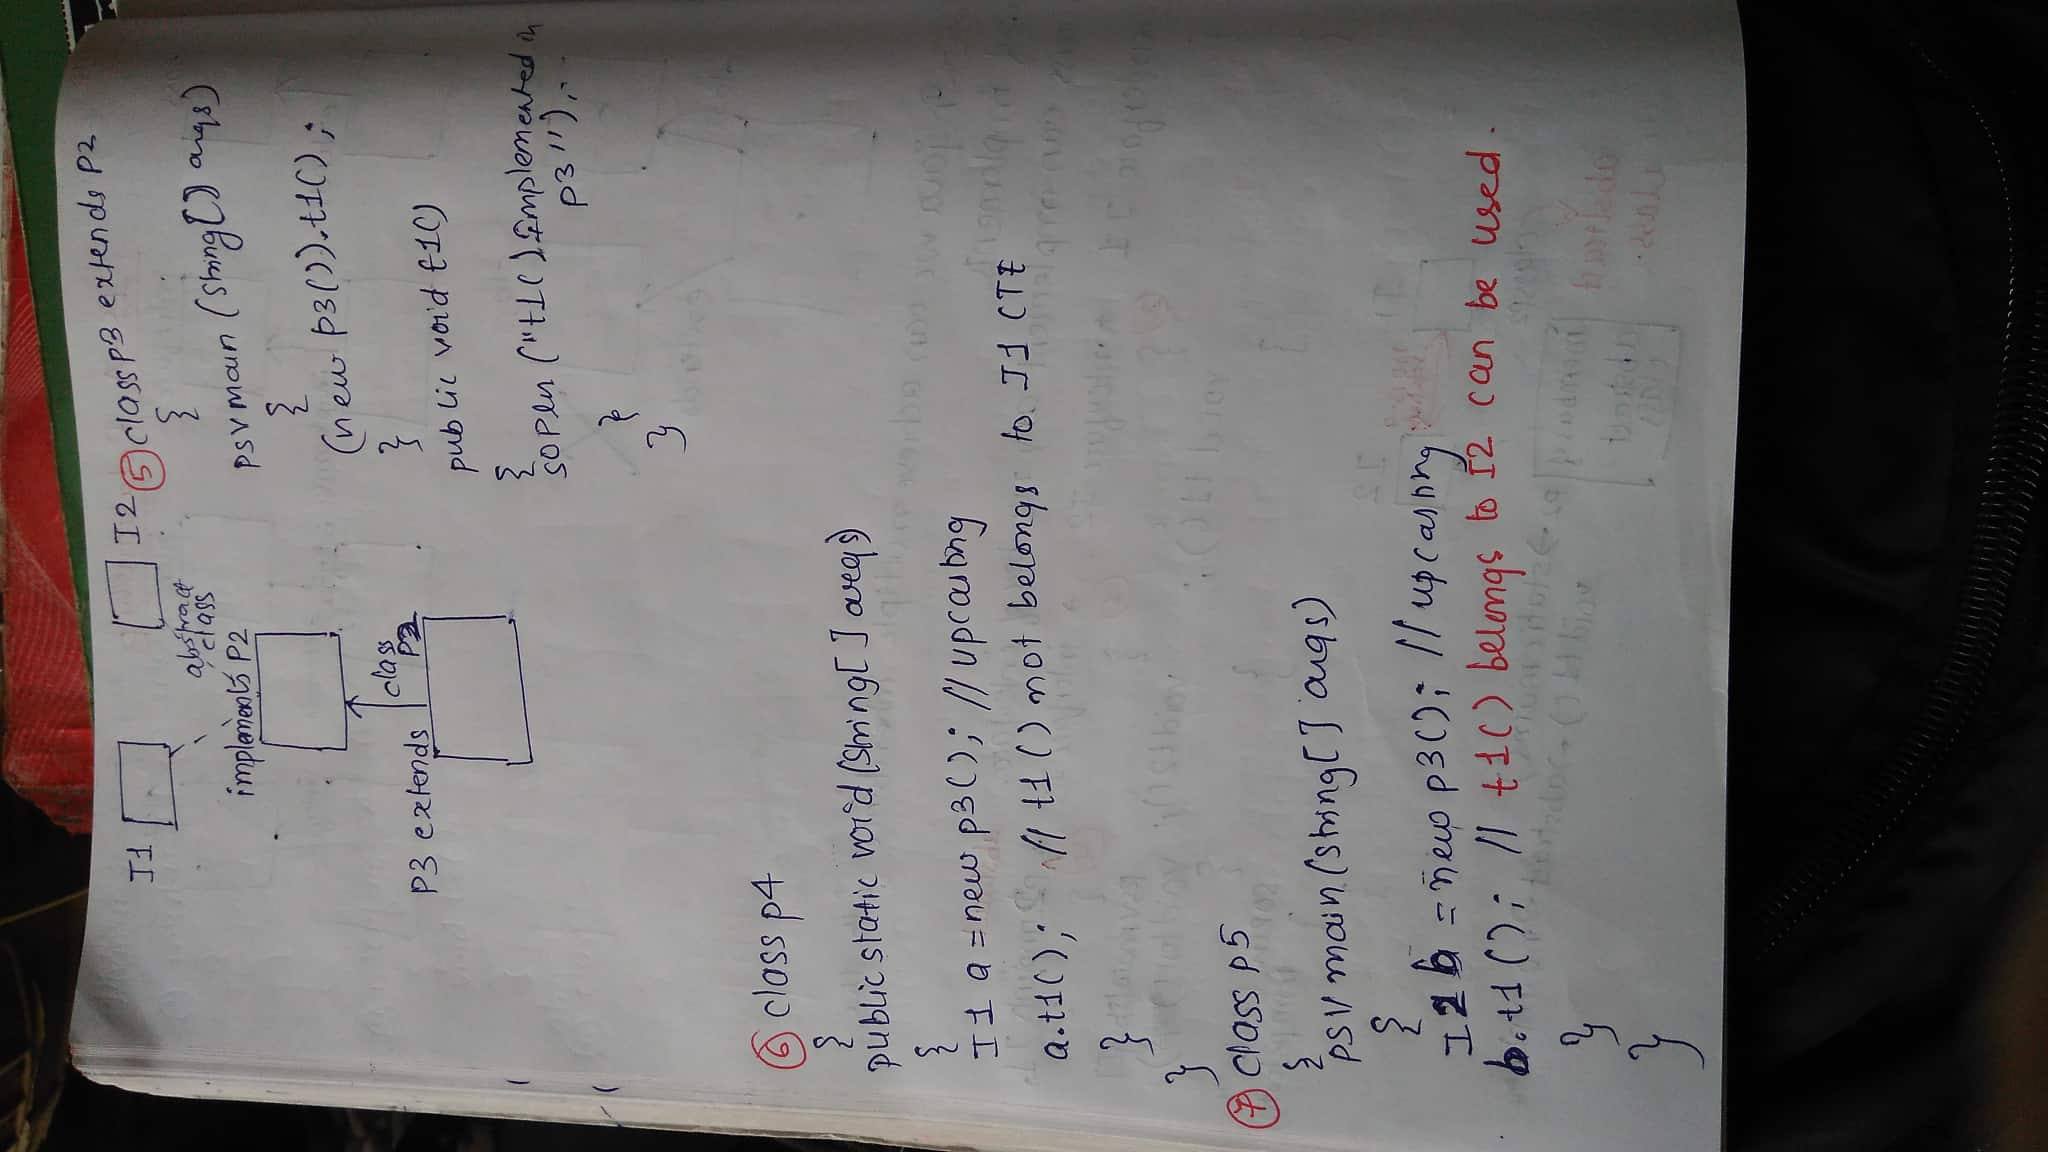 I1
I2
abstract
class
implements P2
class
P3 extends P2
⑤ class p3 extends P2
{
psv main (string[] args)
{
(new p3()).t1();
}
public void t1()
{
sopln ("t1() implemented in
p3");
}
}
⑥ class p4
{
public static void (String[] args)
{
I1 a = new p3(); // upcasting
a.t1(); // t1() not belongs to I1 CTE
}
}
⑦ class p5
{
psv main (string[] args)
{
I2 b = new p3(); // upcasting
b.t1(); // t1() belongs to I2 can be used.
}
}